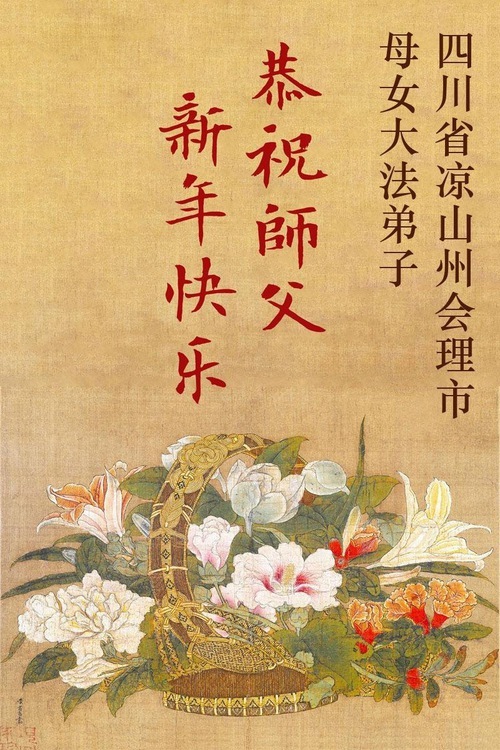 四川省凉山州会理市
母女大法弟子
恭祝師父
新年快乐